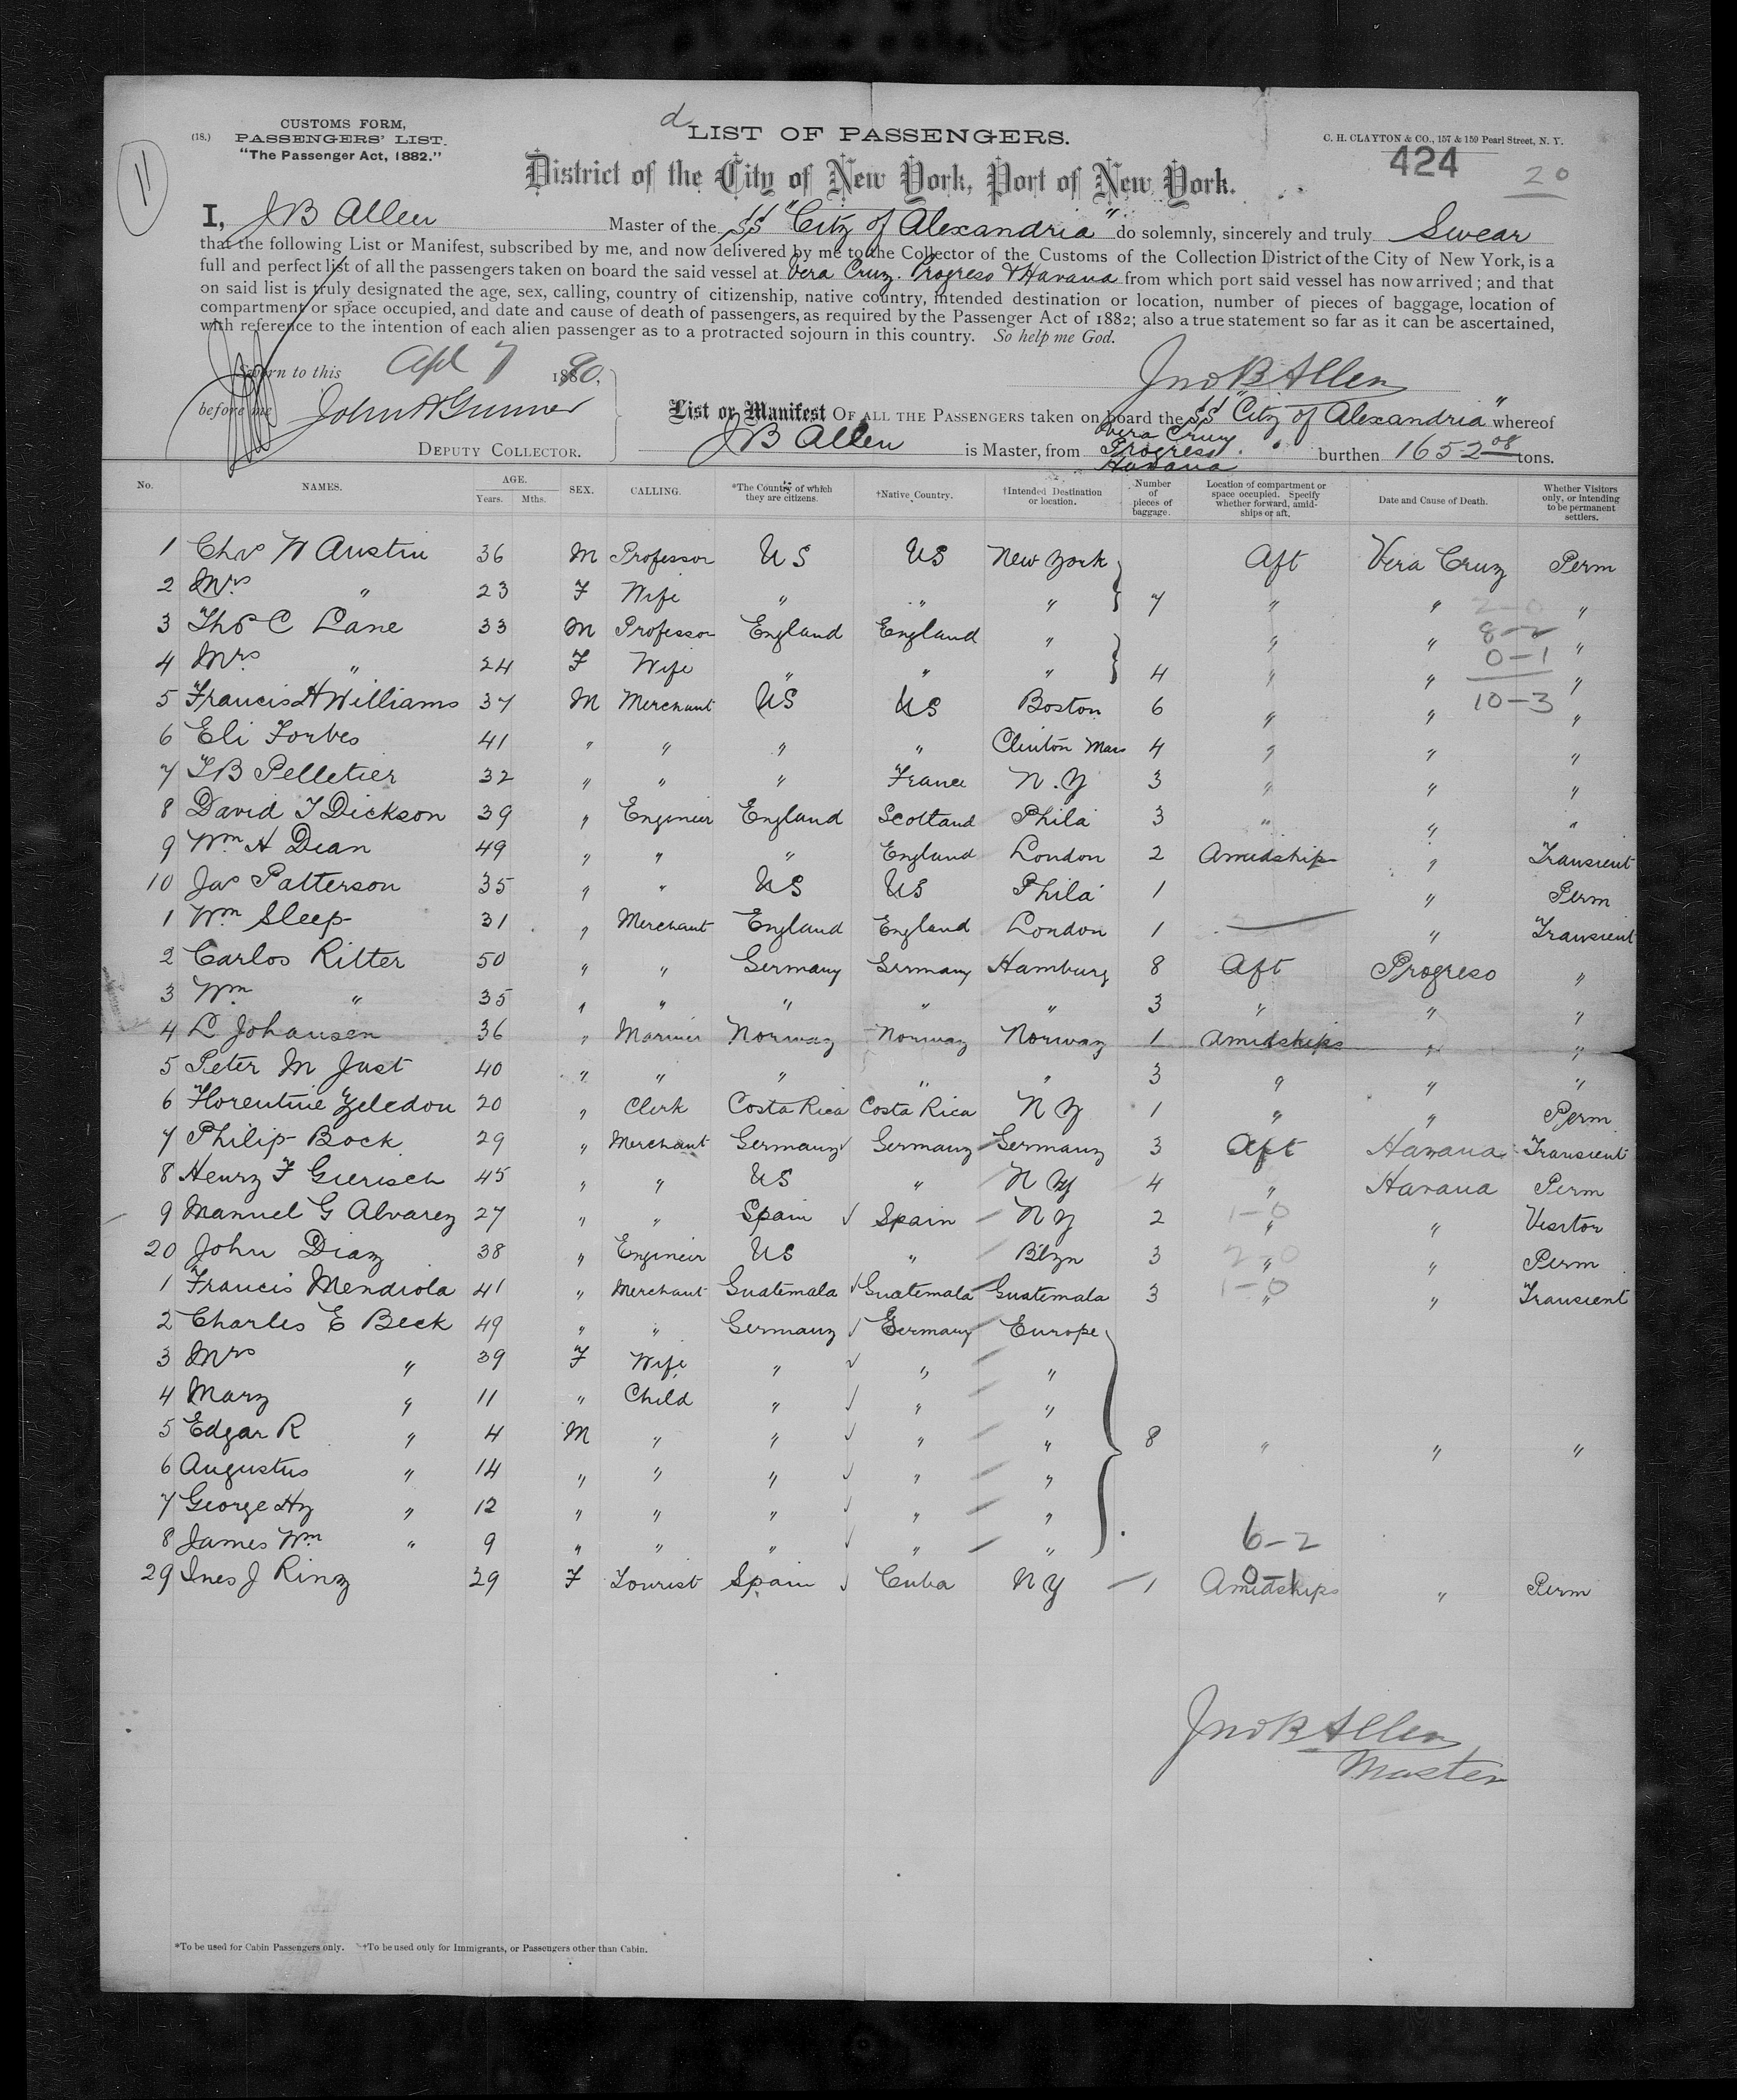 (18.) CUSTOMS FORM,
PASSENGERS' LIST.
"The Passenger Act, 1882."
11
d
LIST OF PASSENGERS.
C. H. CLAYTON & CO., 157 & 159 Pearl Street, N. Y.
424
20
District of the City of New York, Port of New York.
I, J B Allen Master of the SS "City of Alexandria" do solemnly, sincerely and truly Swear
that the following List or Manifest, subscribed by me, and now delivered by me to the Collector of the Customs of the Collection District of the City of New York, is a
full and perfect list of all the passengers taken on board the said vessel at Vera Cruz. Progreso & Havana from which port said vessel has now arrived; and that
on said list is truly designated the age, sex, calling, country of citizenship, native country, intended destination or location, number of pieces of baggage, location of
compartment or space occupied, and date and cause of death of passengers, as required by the Passenger Act of 1882; also a true statement so far as it can be ascertained,
with reference to the intention of each alien passenger as to a protracted sojourn in this country. So help me God.
Sworn to this Apl 7 1890,
Jno B Allen
before me
DEPUTY COLLECTOR.
List or Manifest OF ALL THE PASSENGERS taken on board the SS "City of Alexandria" whereof
J B Allen is Master, from Vera Cruz Progreso Havana burthen 1652 08 tons.
No. NAMES. AGE. Years. Mths. SEX. CALLING. *The Country of which they are citizens. †Native Country. †Intended Destination or location. Number of pieces of baggage. Location of compartment or space occupied. Specify whether forward, amidships or aft. Date and Cause of Death. Whether Visitors only, or intending to be permanent settlers.
1 Chas W Austin 36 M Professor US US New York Aft Vera Cruz Perm
2 Mrs " 23 F Wife " " " 7 " " 2-0 "
3 Thos C Lane 33 M Professor England England " " " 8-2 "
4 Mrs " 24 F Wife " " " 4 " " 0-1 "
5 Francis H Williams 37 M Merchant US US Boston 6 " " 10-3 "
6 Eli Forbes 41 " " " " Clinton Mass 4 " " "
7 T B Pelletier 32 " " " France N.Y 3 " " "
8 David T Dickson 39 " Engineer England Scotland Phila 3 " " "
9 Wm H Dean 49 " " " England London 2 Amidship " Transient
10 Jas Patterson 35 " " US US Phila 1 " Perm
1 Wm Sleep 31 " Merchant England England London 1 — " Transient
2 Carlos Ritter 50 " " Germany Germany Hamburg 8 Aft Progreso "
3 Wm " 35 " " " " " 3 " " "
4 L Johansen 36 " Mariner Norway Norway Norway 1 Amidships " "
5 Peter M Just 40 " " " " " 3 " " "
6 Florentine Zeledon 20 " Clerk Costa Rica Costa Rica N Y 1 " " Perm
7 Philip Bock 29 " Merchant Germany Germany Germany 3 Aft Havana Transient
8 Henry F Gierisch 45 " " US " N Y 4 " Havana Perm
9 Manuel G Alvarez 27 " " Spain Spain N Y 2 1-0 " " Visitor
20 John Diaz 38 " Engineer US " Bklyn 3 2-0 " " Perm
1 Francis Mendiola 41 " Merchant Guatemala Guatemala Guatemala 3 1-0 " " Transient
2 Charles E Beck 49 " " Germany Germany Europe
3 Mrs " 39 F Wife " " "
4 Mary " 11 " Child " " "
5 Edgar R " 4 M " " " " 8 " " "
6 Augustus " 14 " " " " "
7 George Hy " 12 " " " " "
8 James Wm " 9 " " " " " 6-2
29 Ines J 39 F Tourist Spain Cuba N Y 1 Amidships 0-1 " Perm
Jno B Allen
Master
*To be used for Cabin Passengers only. †To be used only for Immigrants, or Passengers other than Cabin.